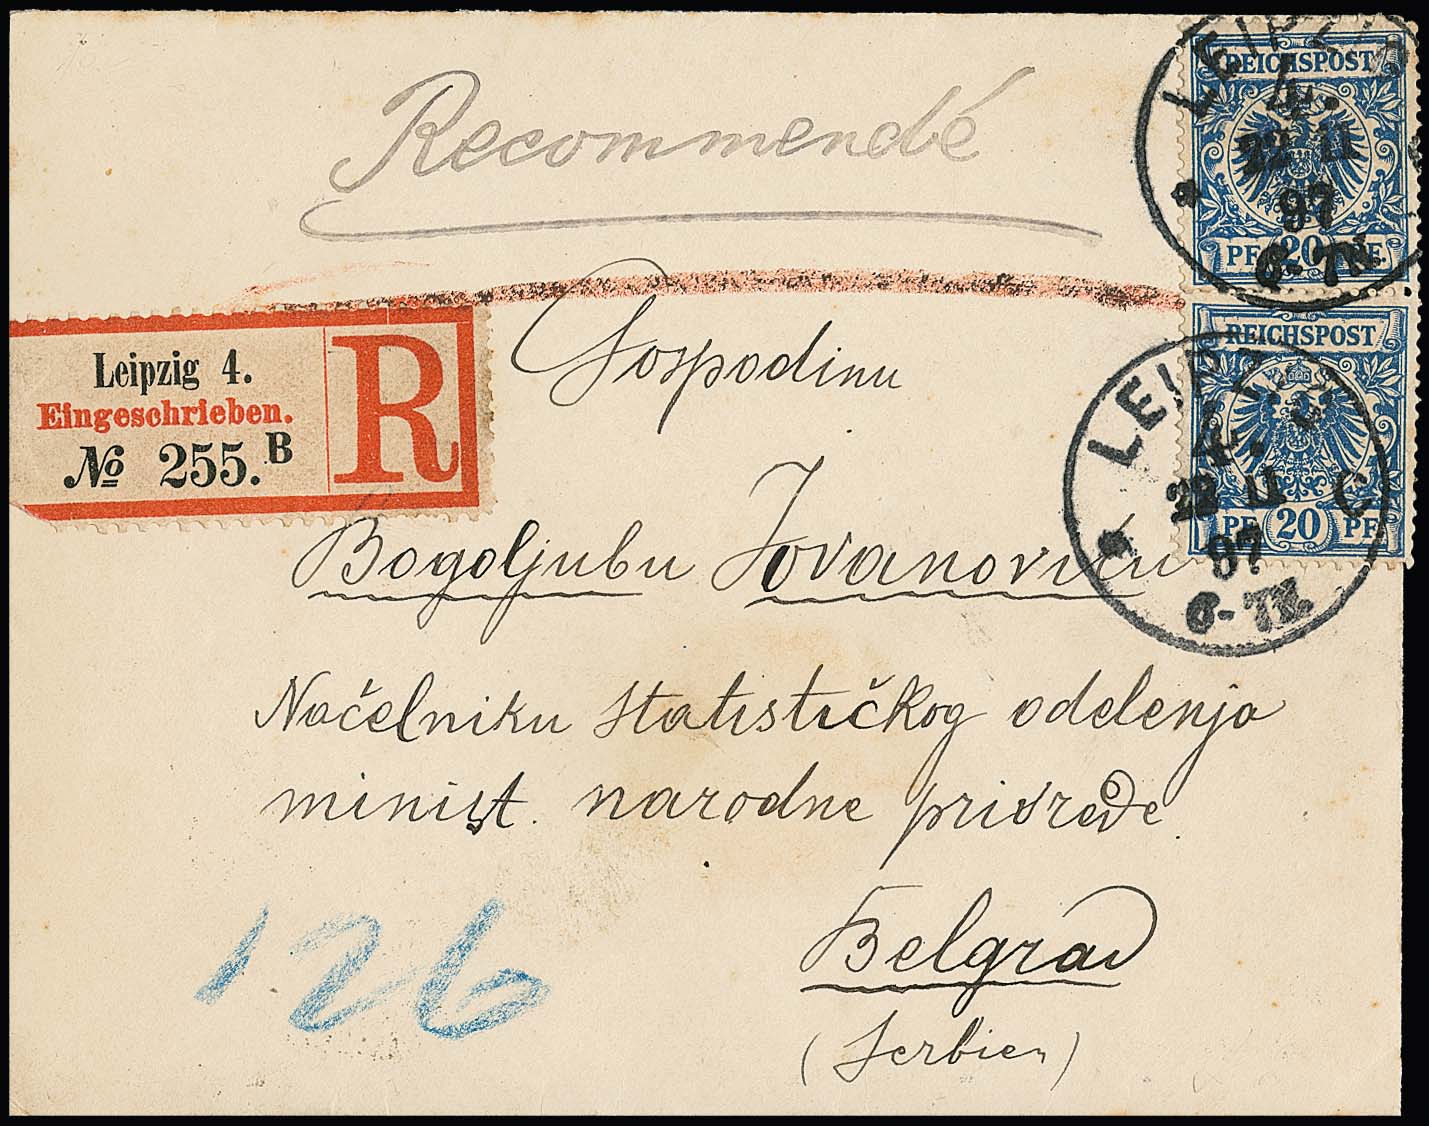 Recommendé
LEIPZIG
REICHSPOST
4.
22 11
97
PF. 20 PF.
6-7N.
Leipzig 4.
Eingeschrieben.
№ 255.B
R
Gospodinu
REICHSPOST
LEIPZIG
4.
22 11 C
97
PF. 20 PF.
6-7N.
Bogoljubu Jovanoviću
Načelniku statističkog odelenja
minist. narodne privrede
Belgrad
(Serbien)
126